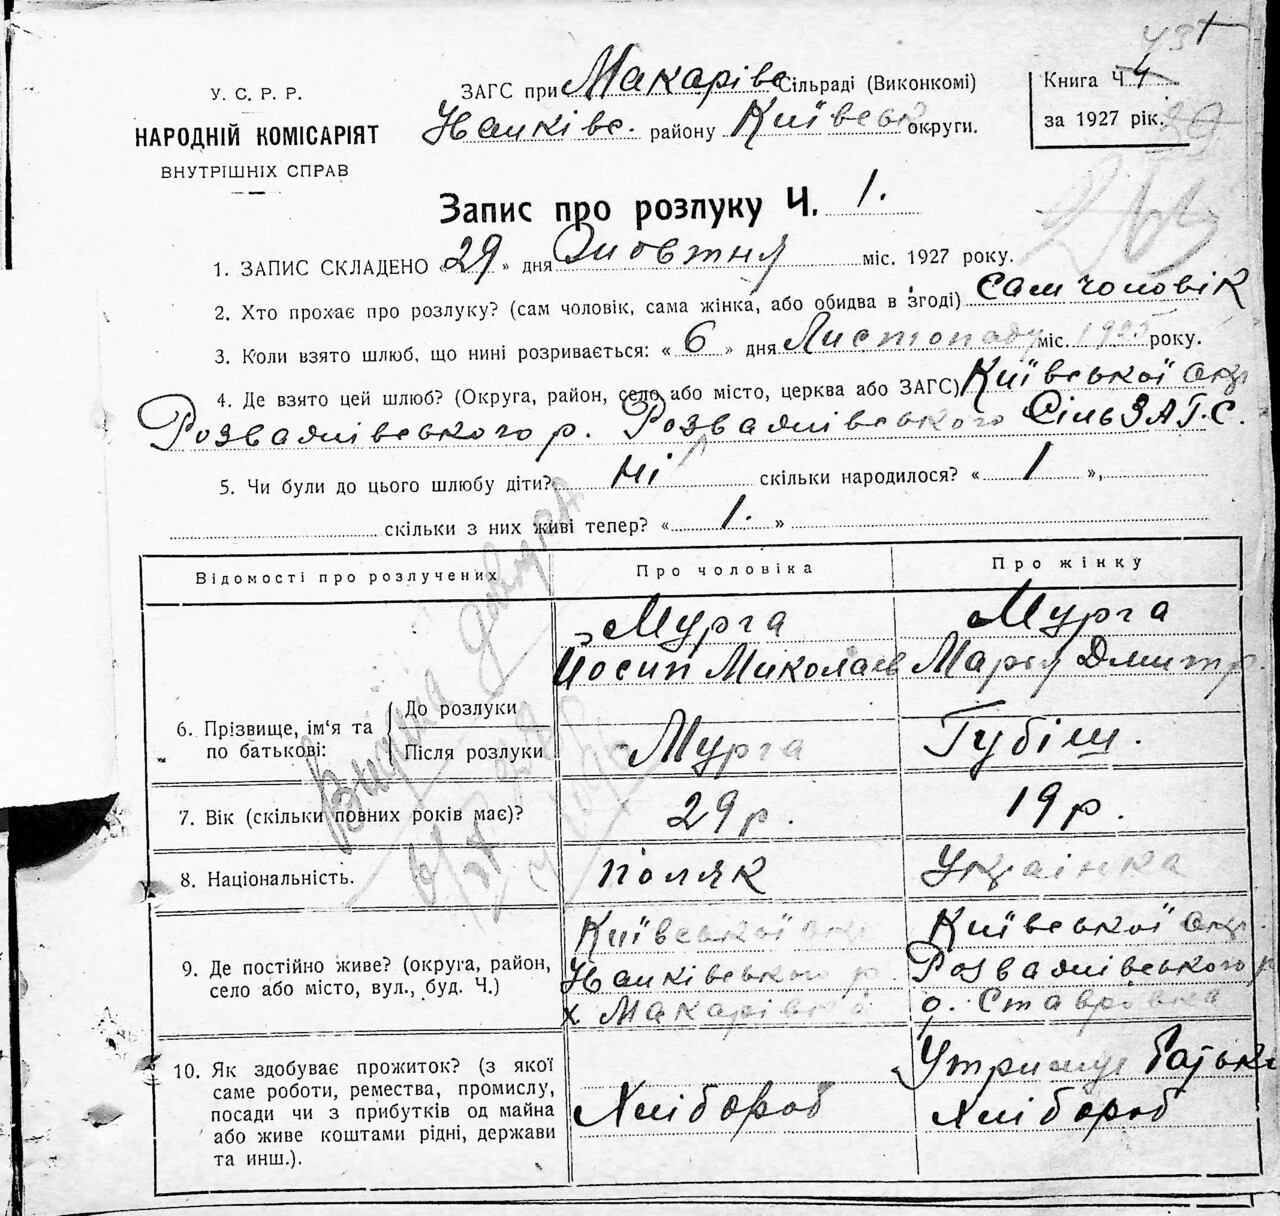 У. С. Р. Р.
НАРОДНІЙ КОМІСАРІЯТ
ВНУТРІШНІХ СПРАВ
ЗАГС при Макарівс Сільраді (Виконкомі)
району Київськ округи.
Книга Ч. 4
за 1927 рік.
Запис про розлуку Ч. 1.
1. ЗАПИС СКЛАДЕНО «29» дня Жовтня міс. 1927 року.
2. Хто прохає про розлуку? (сам чоловік, сама жінка, або обидва в згоді) сам чоловік
3. Коли взято шлюб, що нині розривається: «6» дня Листопаду міс. 1925 року.
4. Де взято цей шлюб? (Округа, район, село або місто, церква або ЗАГС) Київської окр
Розважівського р. Розважівського СільЗАГ.С.
5. Чи були до цього шлюбу діти? ні скільки народилося? «1»,
скільки з них живі тепер? «1.»
Відомості про розлучених
Про чоловіка
Про жінку
6. Прізвище, ім'я та по батькові:
До розлуки
Мурга
Йосип Миколаєв
Мурга
Марья Дмитр.
Після розлуки
Мурга
Губіш.
7. Вік (скільки повних років має)?
29 р.
19 р.
8. Національність.
поляк
Українка
9. Де постійно живе? (округа, район,
село або місто, вул., буд. Ч.)
Київської окр
х Макарівка
Київської окр.
Розважівського р
с. Ставровка
10. Як здобуває прожиток? (з якої
саме роботи, ремества, промислу,
посади чи з прибутків од майна
або живе коштами рідні, держави
та инш.).
Хлібороб
Утримує батько
Хлібороб